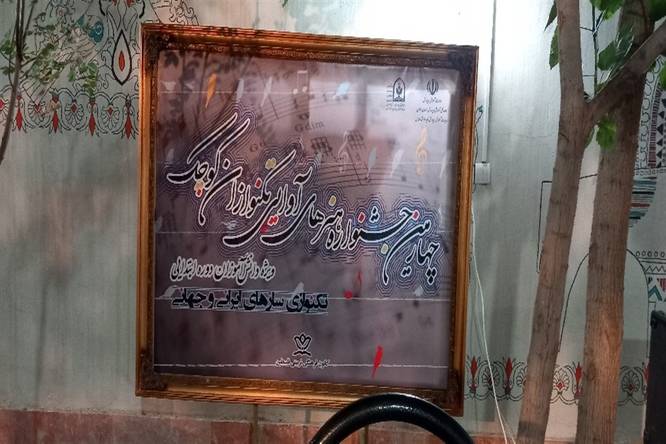 چهارمین جشنواره هنرهای آوایی تکنوازان کوچک
ویژه دانش آموزان دوره ابتدایی
تکنوازی سازهای ایرانی و جهانی
Gdim